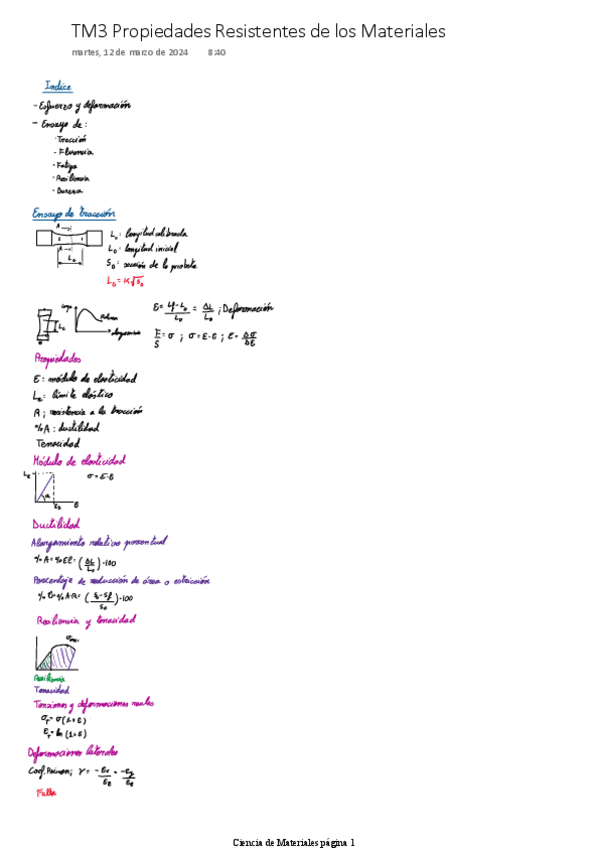 TM3 Propiedades Resistentes de los Materiales
martes, 12 de marzo de 2024 8:40
Indice
- Esfuerzo y deformación
- Ensayo de:
· Tracción
- Fluencia
· Fatiga
· Resiliencia
· Dureza
Ensayo de tracción
L₀
L₀: longitud inicial
S₀: sección de la probeta
L₀ = K√S₀
ε = Lf - L₀ / L₀ = ΔL / L₀ ; Deformación
F/S = σ ; σ = E·ε ; E = Δσ/Δε
Propiedades
E: módulo de elasticidad
Lₑ: límite elástico
R; resistencia a la tracción
%A: ductilidad
Tenacidad
Módulo de elasticidad
σ = E·ε
Ductilidad
Alargamiento relativo porcentual
%A = %EL = (ΔL/L₀)·100
Porcentaje de reducción de área o estricción
(S₀-Sf/S₀)·100
Resiliencia y tenacidad
Resiliencia
Tenacidad
Tensiones y deformaciones reales
σT = σ(1+ε)
εT = ln(1+ε)
Deformaciones laterales
Coef. Poisson;
Falta
Ciencia de Materiales página 1